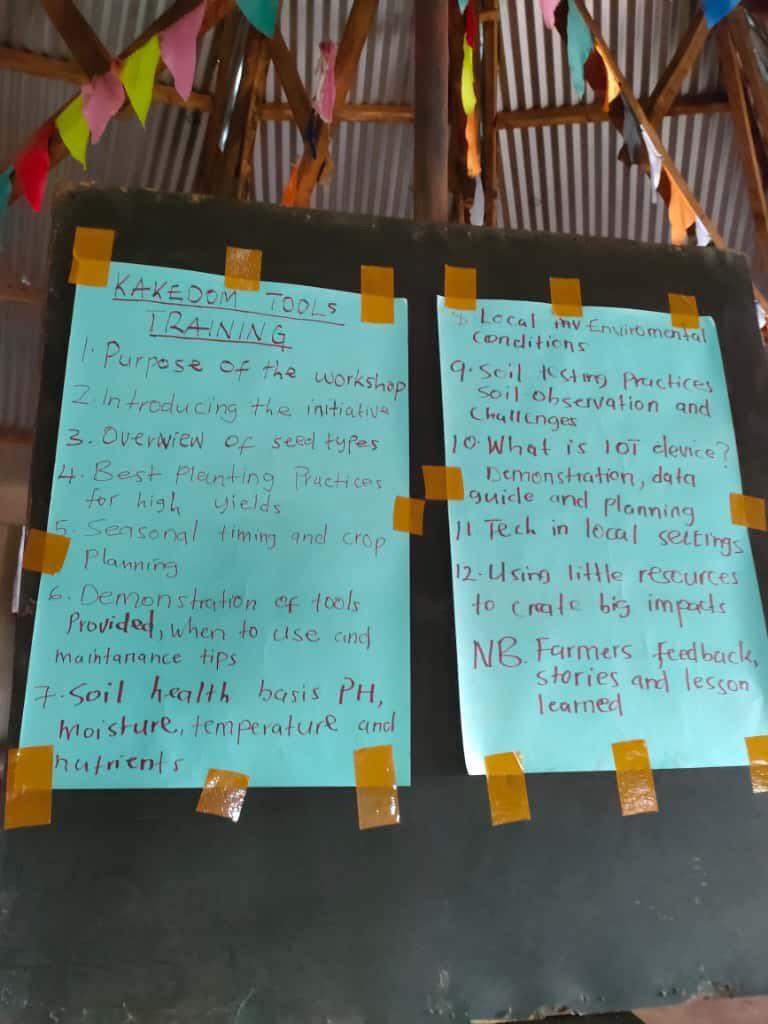 KAKEDOM TOOLS
TRAINING
1. Purpose of the workshop
2. Introducing the initiative
3. Overview of seed types
4. Best Planting Practices
for high yields
5. Seasonal timing and crop
Planning
6. Demonstration of tools
Provided, when to use and
maintanance tips
7. Soil health basis PH,
moisture, temperature and
nutrients
8. Local inv Enviromental
conditions
9. Soil testing Practices
Soil observation and
Challenges
10. What is IOT device?
Demonstration, data
guide and planning
11. Tech in local settings
12. Using little resources
to create big impacts
NB. Farmers feedback,
stories and lesson
learned